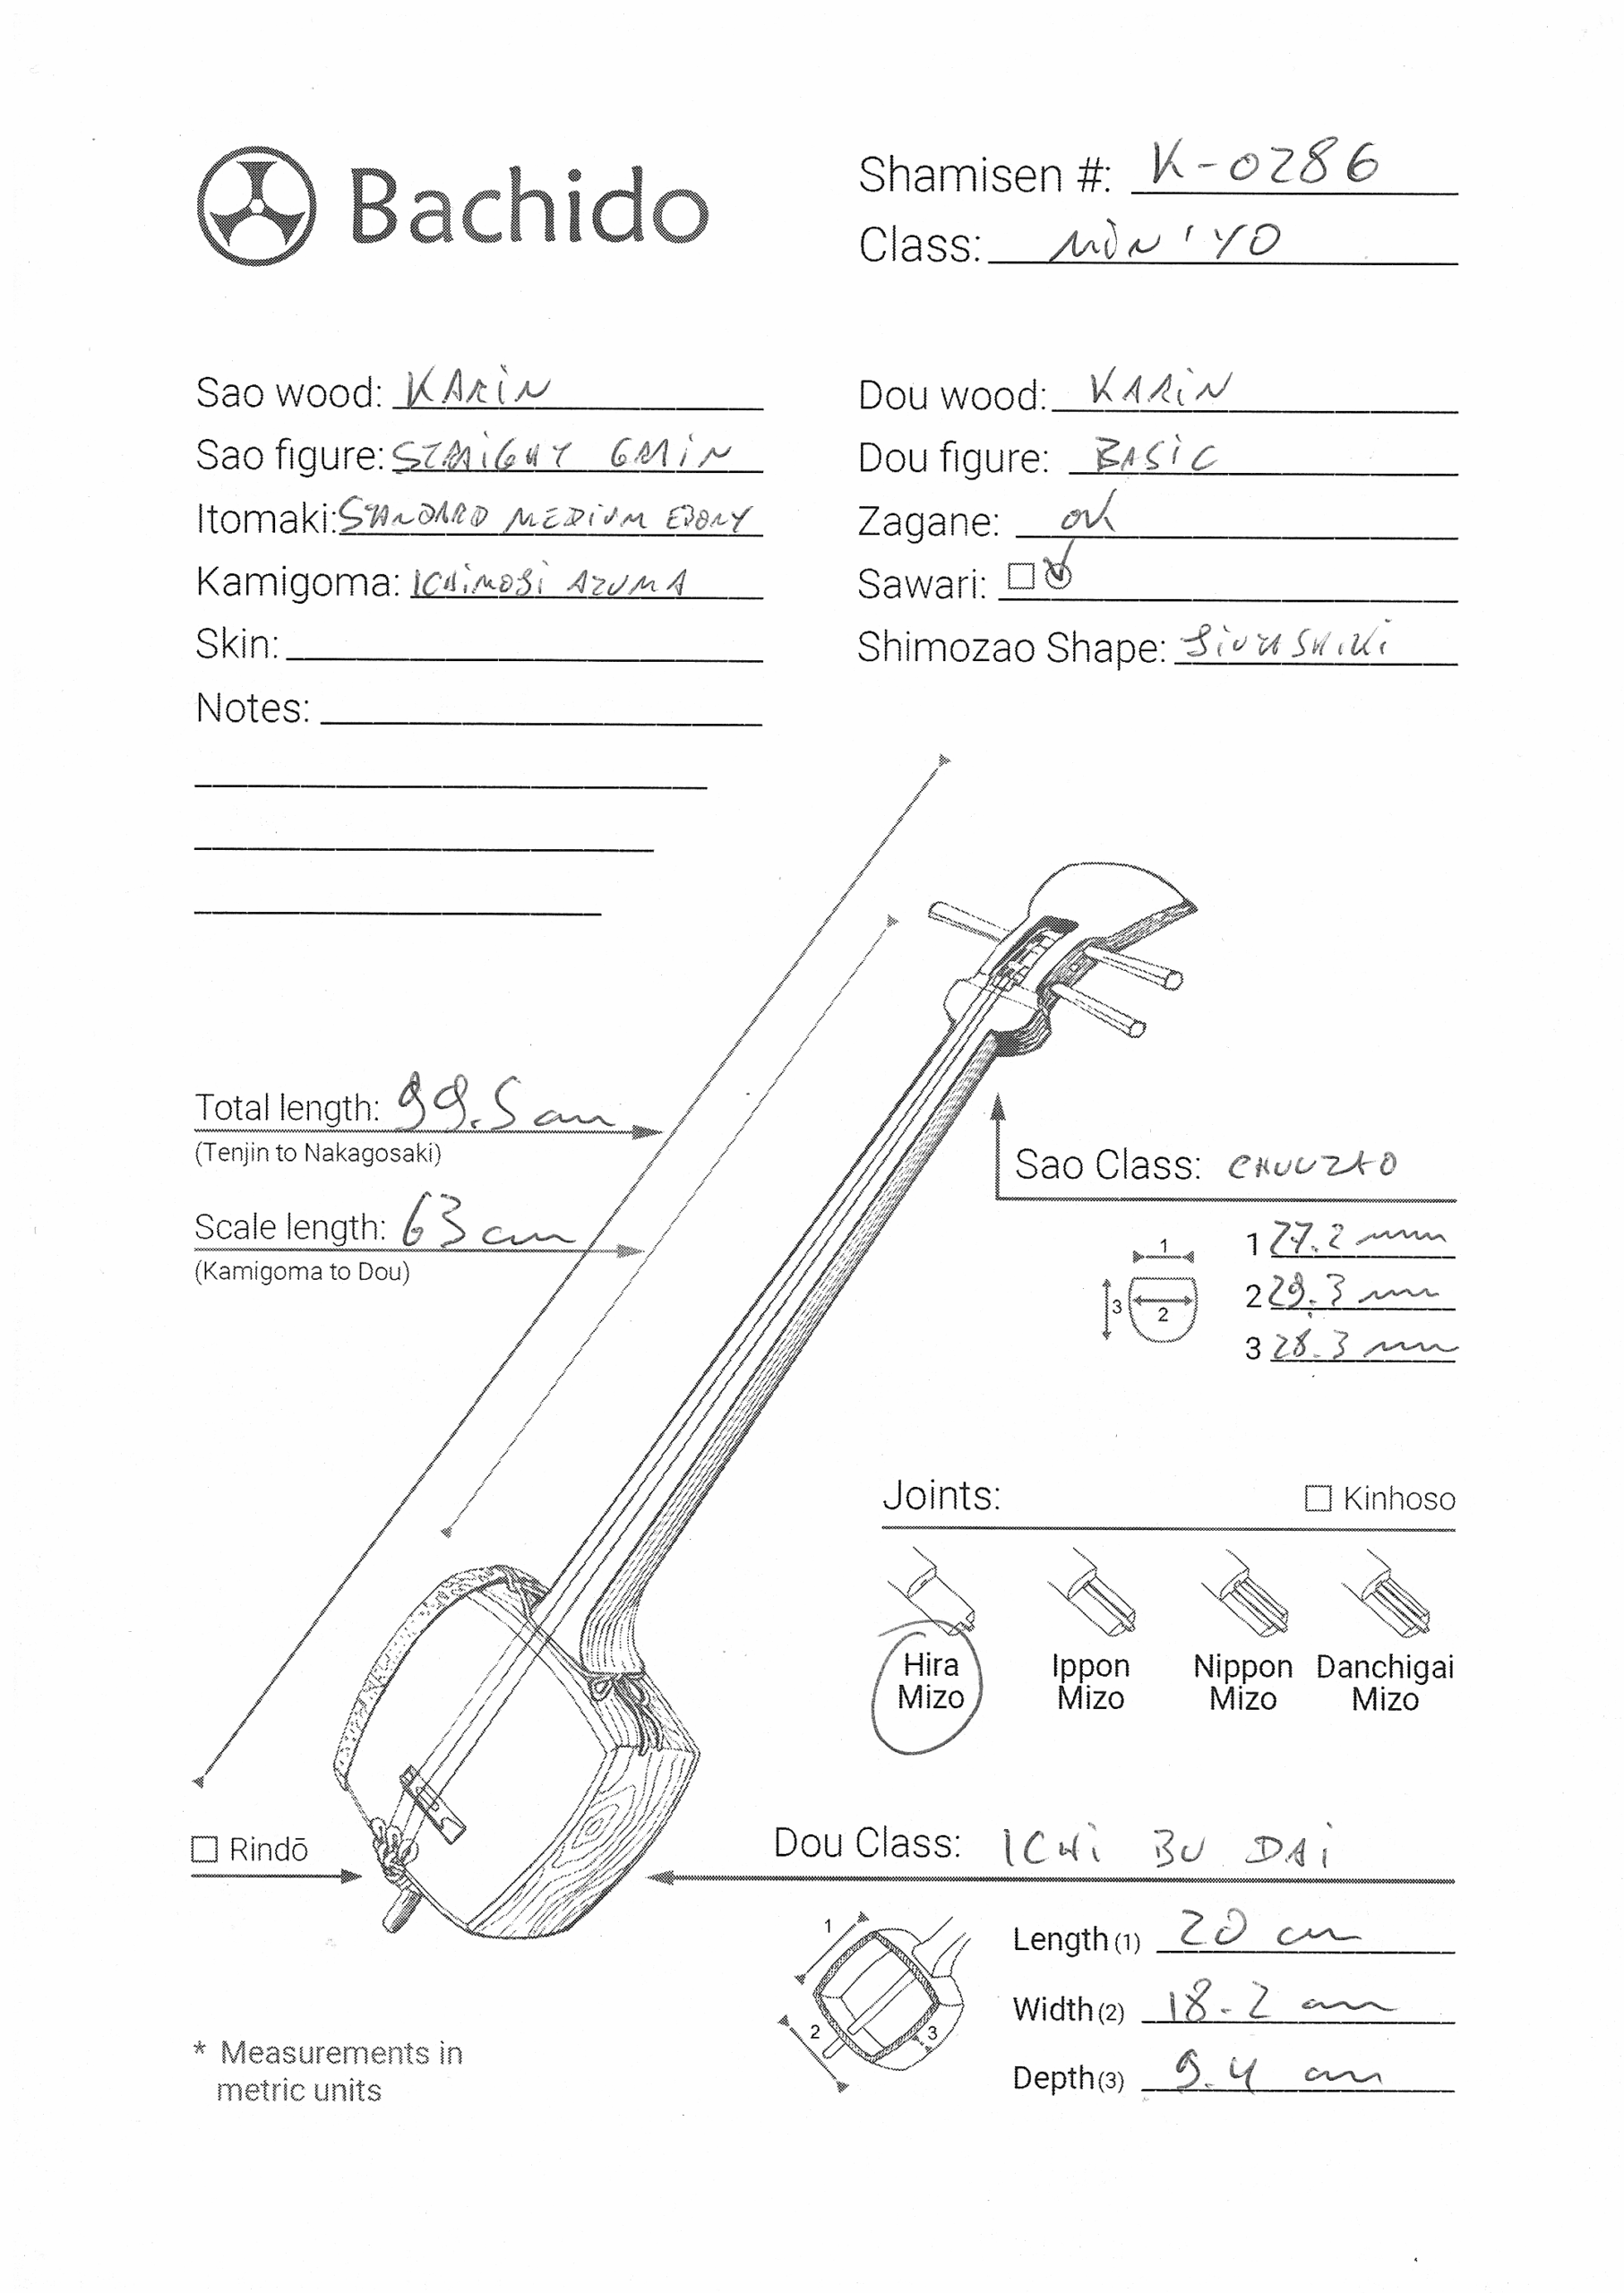 Bachido
Shamisen #: K-0286
Class: MIN'YO
Sao wood: KARIN
Sao figure: STRAIGHT GRAIN
Itomaki: STANDARD MEDIUM EBONY
Kamigoma: ICHIMOJI AZUMA
Skin:
Notes:
Dou wood: KARIN
Dou figure: BASIC
Zagane: OK
Sawari:
Shimozao Shape:
Total length: 99.5 cm
(Tenjin to Nakagosaki)
Scale length: 63 cm
(Kamigoma to Dou)
Sao Class: CHUUZAO
1
3
2
1 27.2 mm
2 29.3 mm
3 28.3 mm
Joints:
Kinhoso
Hira
Mizo
Ippon
Mizo
Nippon
Mizo
Danchigai
Mizo
Rindō
Dou Class: ICHI BU DAI
1
2
3
Length (1) 20 cm
Width (2) 18.2 cm
Depth (3) 9.4 cm
* Measurements in
metric units